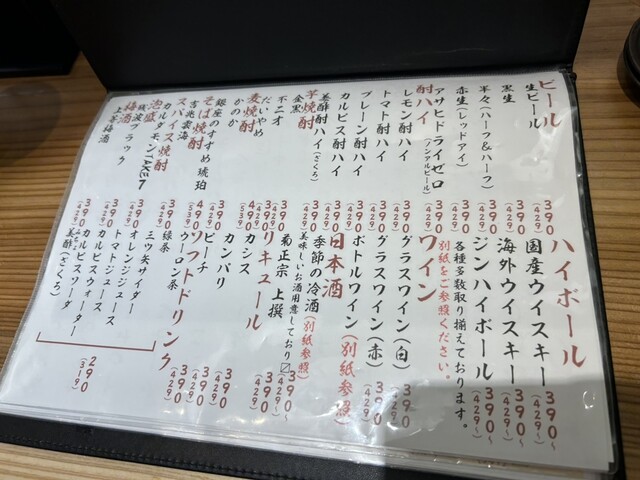 ビール
生ビール 390(429)
黒生 390(429)
半々(ハーフ&ハーフ) 390(429)
赤生(レッドアイ) 390(429)
アサヒドライゼロ(ノンアルビール) 390(429)
酎ハイ
レモン酎ハイ 390(429)
トマト酎ハイ 390(429)
プレーン酎ハイ 390(429)
カルピス酎ハイ 390(429)
美酢酎ハイ(ざくろ) 390(429)
芋焼酎
金黒 390(429)
不二才 390(429)
だいやめ 390(429)
麦焼酎
かのか 390(429)
銀座のすずめ 琥珀 490(539)
そば焼酎
吉兆雲海 390(429)
スパイス焼酎
カルダモンTAKE7 490(539)
泡盛
残波ブラック 390(429)
梅酒
上等梅酒 390(429)
ハイボール
国産ウイスキー 390〜(429〜)
海外ウイスキー 390〜(429〜)
ジンハイボール 390〜(429〜)
各種多数取り揃えております。
別紙をご参照ください。
ワイン
グラスワイン(白) 390〜(429〜)
グラスワイン(赤) 390〜(429〜)
ボトルワイン(別紙参照)
日本酒
季節の冷酒(別紙参照)
美味しいお酒用意しており〼 390〜(429〜)
菊正宗 上撰 390(429)
リキュール
カシス 390(429)
カンパリ 390(429)
ピーチ 390(429)
ソフトドリンク
ウーロン茶 390(429)
緑茶 390(429)
三ツ矢サイダー
オレンジジュース
トマトジュース
カルピスウォーター
カルピスソーダ
美酢(ざくろ)
290(319)